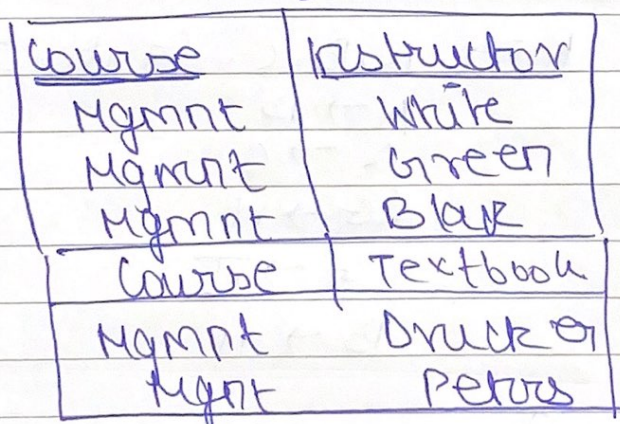 Course Instructor
Mgmnt White
Mgmnt Green
Mgmnt Black
Course Textbook
Mgmnt Drucker
Mgnt Peters